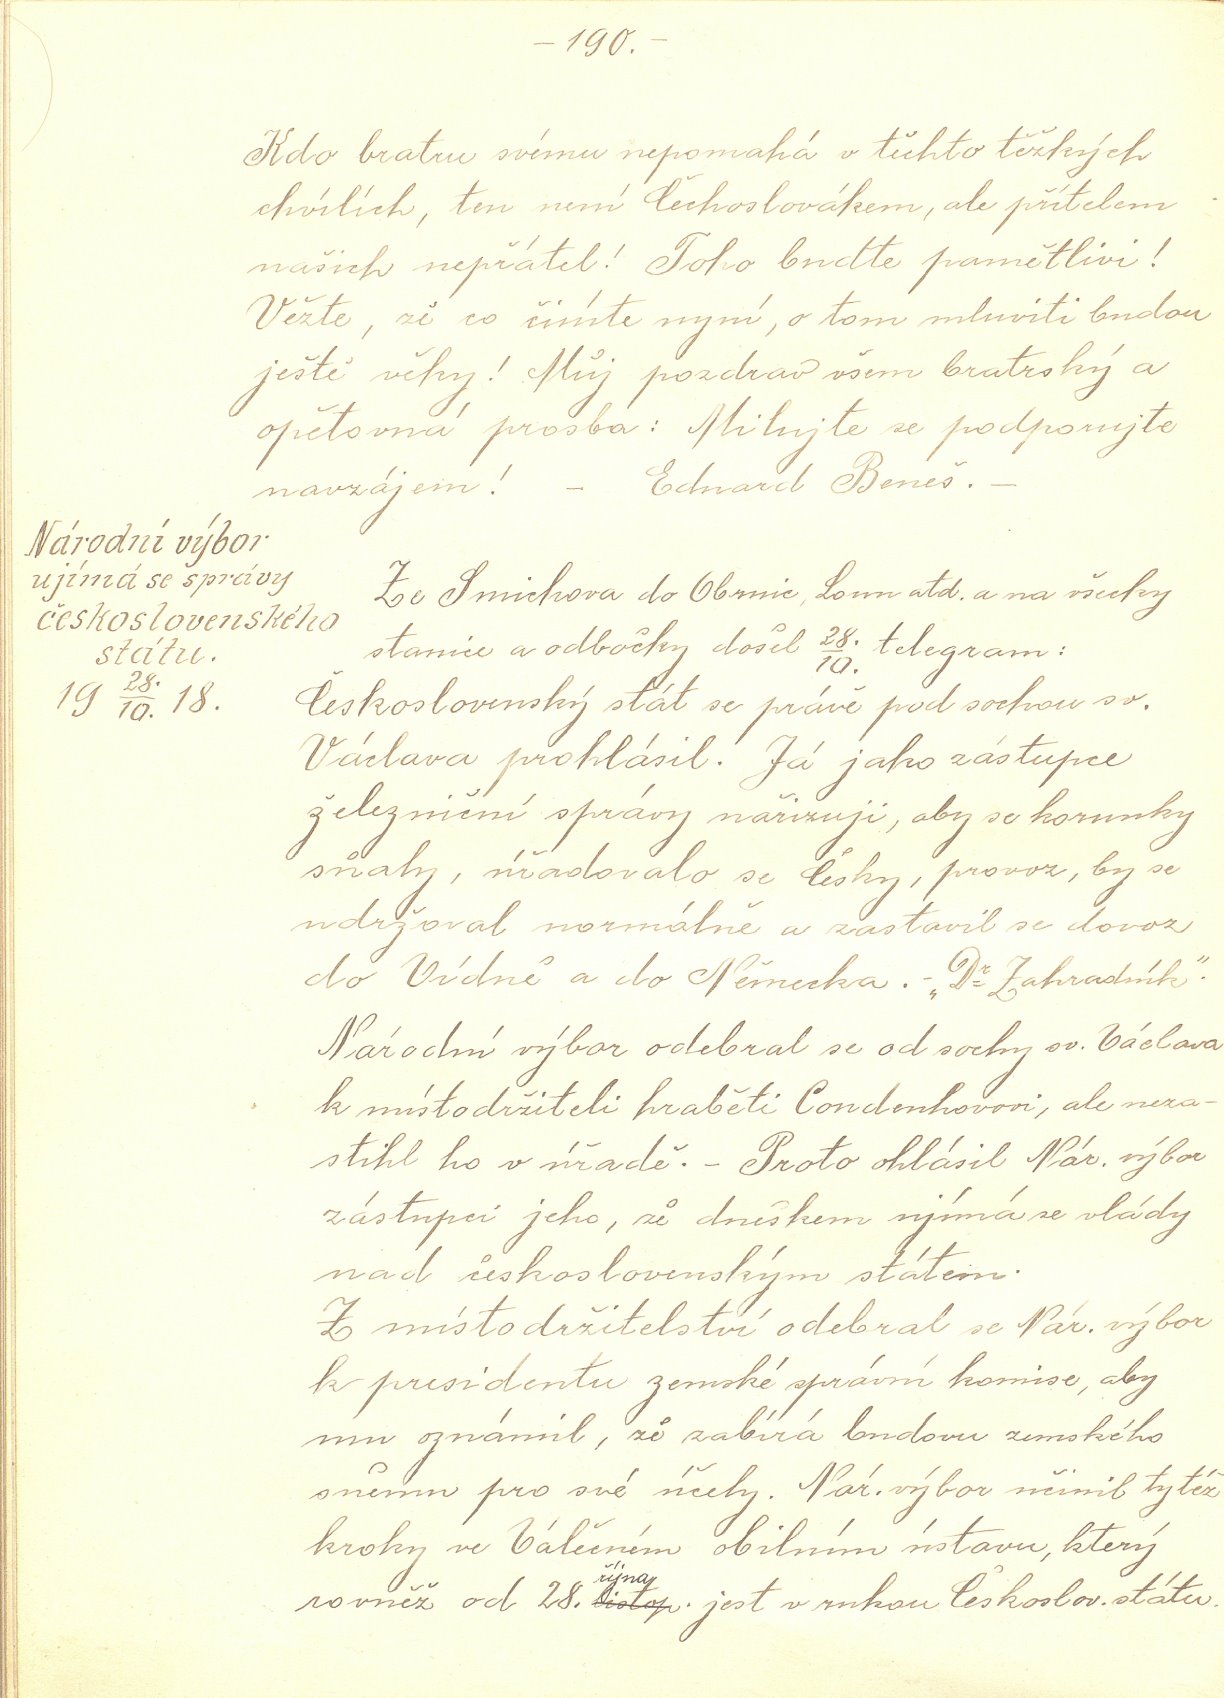 – 190. –
Kdo bratru svému nepomahá v těchto těžkých
chvílích, ten není Čechoslovákem, ale přítelem
našich nepřátel! Toho buďte pamětlivi!
Vězte, že co činíte nyní, o tom mluviti budou
ještě věky! Můj pozdrav všem bratrský a
opětovná prosba: Milujte se podporujte
navzájem! – Eduard Beneš. –
Národní výbor
ujímá se správy
československého
státu.
19 28./10. 18.
Ze Smichova do Obrnic, Loun atd. a na všecky
stanice a odbočky došel 28./10. telegram:
Československý stát se právě pod sochou sv.
Václava prohlásil. Já jako zástupce
železniční správy nařizuji, aby se korunky
sňaly, úřadovalo se česky, provoz, by se
udržoval normálně a zastavil se dovoz
do Vídně a do Německa. – „Dr. Zahradník".
Národní výbor odebral se od sochy sv. Václava
k místodržiteli hraběti Condenhovovi, ale neza-
stihl ho v úřadě. – Proto ohlásil Nár. výbor
zástupci jeho, že dneškem ujímá se vlády
nad československým státem.
Z místodržitelství odebral se Nár. výbor
k presidentu zemské správní komise, aby
mu oznámil, že zabírá budovu zemského
sněmu pro své účely. Nár. výbor učinil tytéž
kroky ve Válečném obilním ústavu, který
října
rovněž od 28. listop. jest v rukou Českoslov. státu.